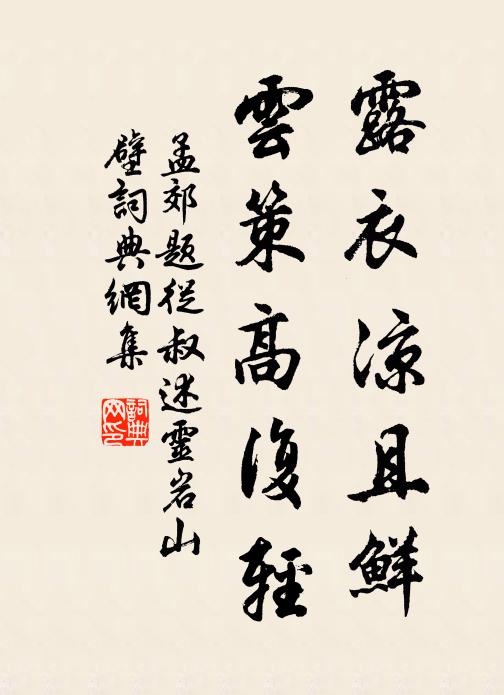 露衣涼且鮮
雲策高復輕
孟郊題從叔述靈岩山
壁詞典網集
詞典網印